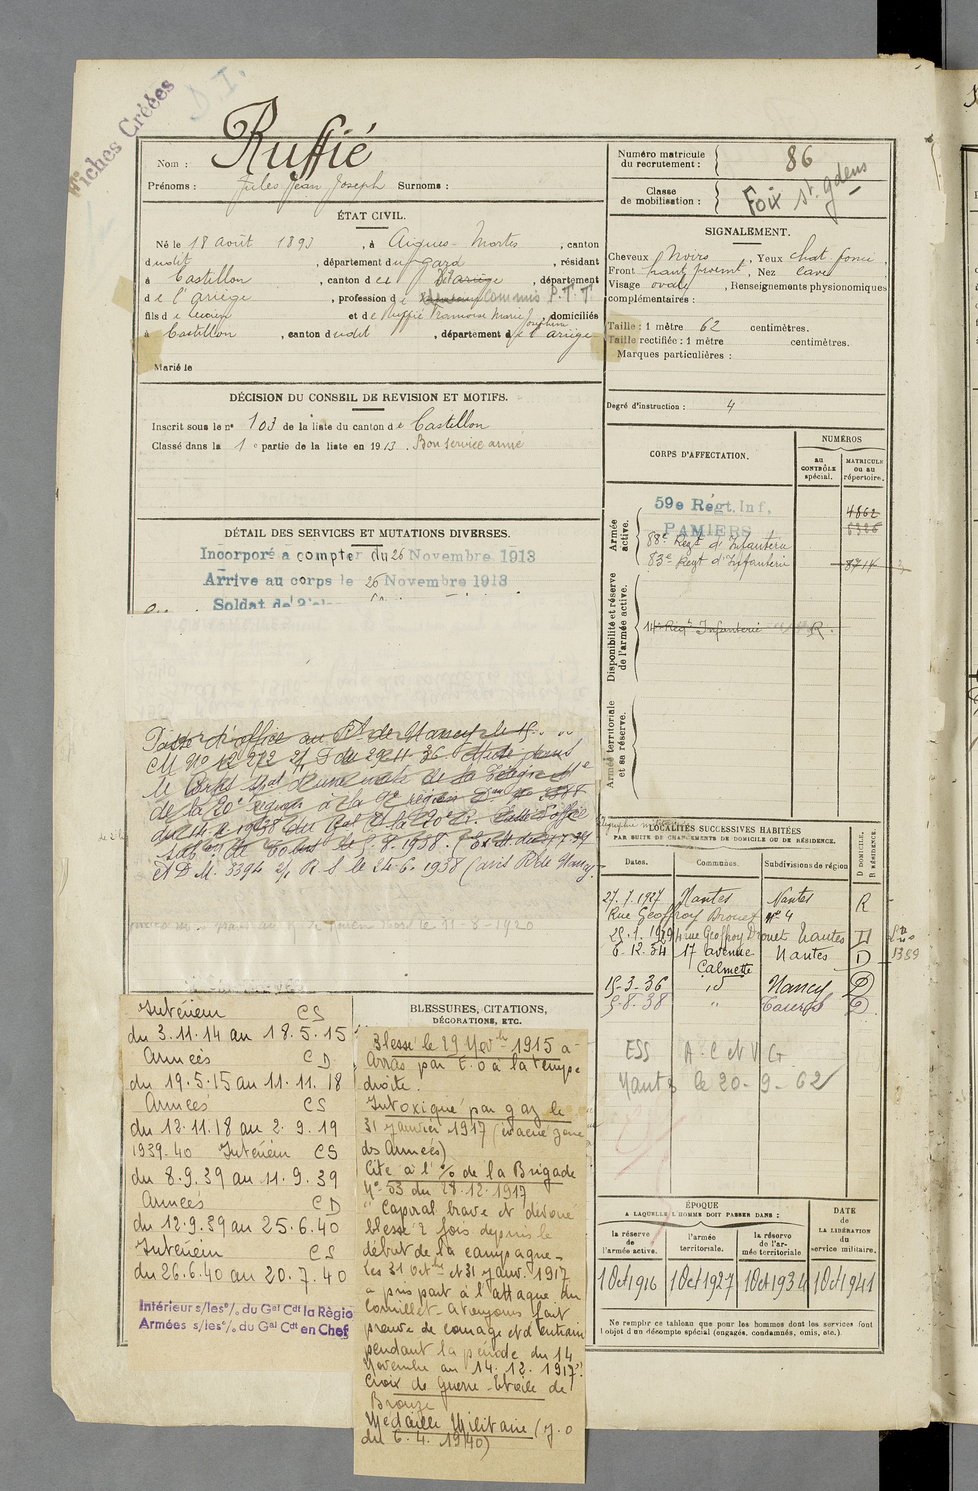 Fiches Créées
D I.
Nom : Ruffié
Prénoms : Jules Jean Joseph Surnoms :
ÉTAT CIVIL.
Né le 18 août 1893, à Aigues-Mortes, canton
dudit, département du Gard, résidant
à Castillon, canton de dit, département
de l'ariège, profession de Commis P.T.T.
fils de Lucien et de Ruffié Françoise Marie Josephine, domiciliés
à Castillon, canton dudit, département de l'ariège
Marié le
DÉCISION DU CONSEIL DE REVISION ET MOTIFS.
Inscrit sous le n° 103 de la liste du canton de Castillon
Classé dans la 1e partie de la liste en 1913. Bon service armé
DÉTAIL DES SERVICES ET MUTATIONS DIVERSES.
Incorporé a compter du 26 Novembre 1913
Arrivé au corps le 26 Novembre 1913
Soldat de 2e
Passé d'office au
CM N° 12 272 2/ du 29-11-36
le Corps
de la 20e région à la 9e région
du 14-2-1938 du Gal Ct la 20e R.
de Tours le 5.8.1938.
A D M. 3394 2/1 R S le 24-6-1938 (avis Rble Nancy.
le 31-8-1920
Intérieur CS
du 3.11.14 au 18.5.15
Armées CD
du 19.5.15 au 11.11.18
Armées CS
du 12.11.18 au 2.9.19
1939.40 Intérieur CS
du 8.9.39 au 11.9.39
Armées CD
du 12.9.39 au 25.6.40
Intérieur CS
du 26.6.40 au 20.7.40
Intérieur s/les°/. du Gal Cdt la Régio
Armées s/les°/. du Gal Cdt en Chef
BLESSURES, CITATIONS,
DÉCORATIONS, ETC.
Blessé le 29 Novbre 1915 a
Arras par E.O à la tempe
droite.
Intoxiqué par gaz le
31 janvier 1917 (évacué zone
ds Armées)
Cité à l'% de la Brigade
N° 53 du 28.12.1917
"Caporal brave et dévoué
blessé 2 fois depuis le
début de la campagne -
les 31 Octbre et 31 janv. 1917
a pris part à l'attaque du
Cornillet - a toujours fait
preuve de courage et d'entrain
pendant la période du 14
Novembre au 14.12.1917"
Croix de Guerre Etoile de
Bronze
Médaille Militaire (J.O
du 6.4.1940)
Numéro matricule
du recrutement : 86
Classe
de mobilisation : Foix St. Gdens
SIGNALEMENT.
Cheveux Noirs, Yeux chat. foncé,
Front haut proémt, Nez cave
Visage ovale, Renseignements physionomiques
complémentaires :
Taille : 1 mètre 62 centimètres.
Taille rectifiée : 1 mètre centimètres.
Marques particulières :
Degré d'instruction : 4
CORPS D'AFFECTATION.
NUMÉROS
au CONTRÔLE spécial.
MATRICULE ou au répertoire.
Armée active.
59e Régt. Inf,
PAMIERS
4862
6326
88e Regt d'Infanterie
83e Regt d'Infanterie 8714
Disponibilité et réserve de l'armée active.
14e Régt Infanterie R.
Armée territoriale et sa réserve.
LOCALITÉS SUCCESSIVES HABITÉES
PAR SUITE DE CHANGEMENTS DE DOMICILE OU DE RÉSIDENCE.
Dates. Communes. Subdivisions de région D DOMICILE. R RÉSIDENCE.
27.7.1927 Nantes Nantes R
Rue Geoffroy Drouet N° 4
29.1.1929 4 rue Geoffroy Drouet Nantes D
6.12.34 17 avenue Calmette Nantes D
1359
15-3-36 id Nancy D
5.8.38 " D
ESS A.C et V G
Nantes le 20-9-62
ÉPOQUE
A LAQUELLE L'HOMME DOIT PASSER DANS :
la réserve de l'armée active.
l'armée territoriale.
la réserve de l'armée territoriale
DATE de LA LIBÉRATION du service militaire.
1 Oct 1916 1 Oct 1927 1 Oct 1934 1 Oct 1941
Ne remplir ce tableau que pour les hommes dont les services font
l'objet d'un décompte spécial (engagés, condamnés, omis, etc.).